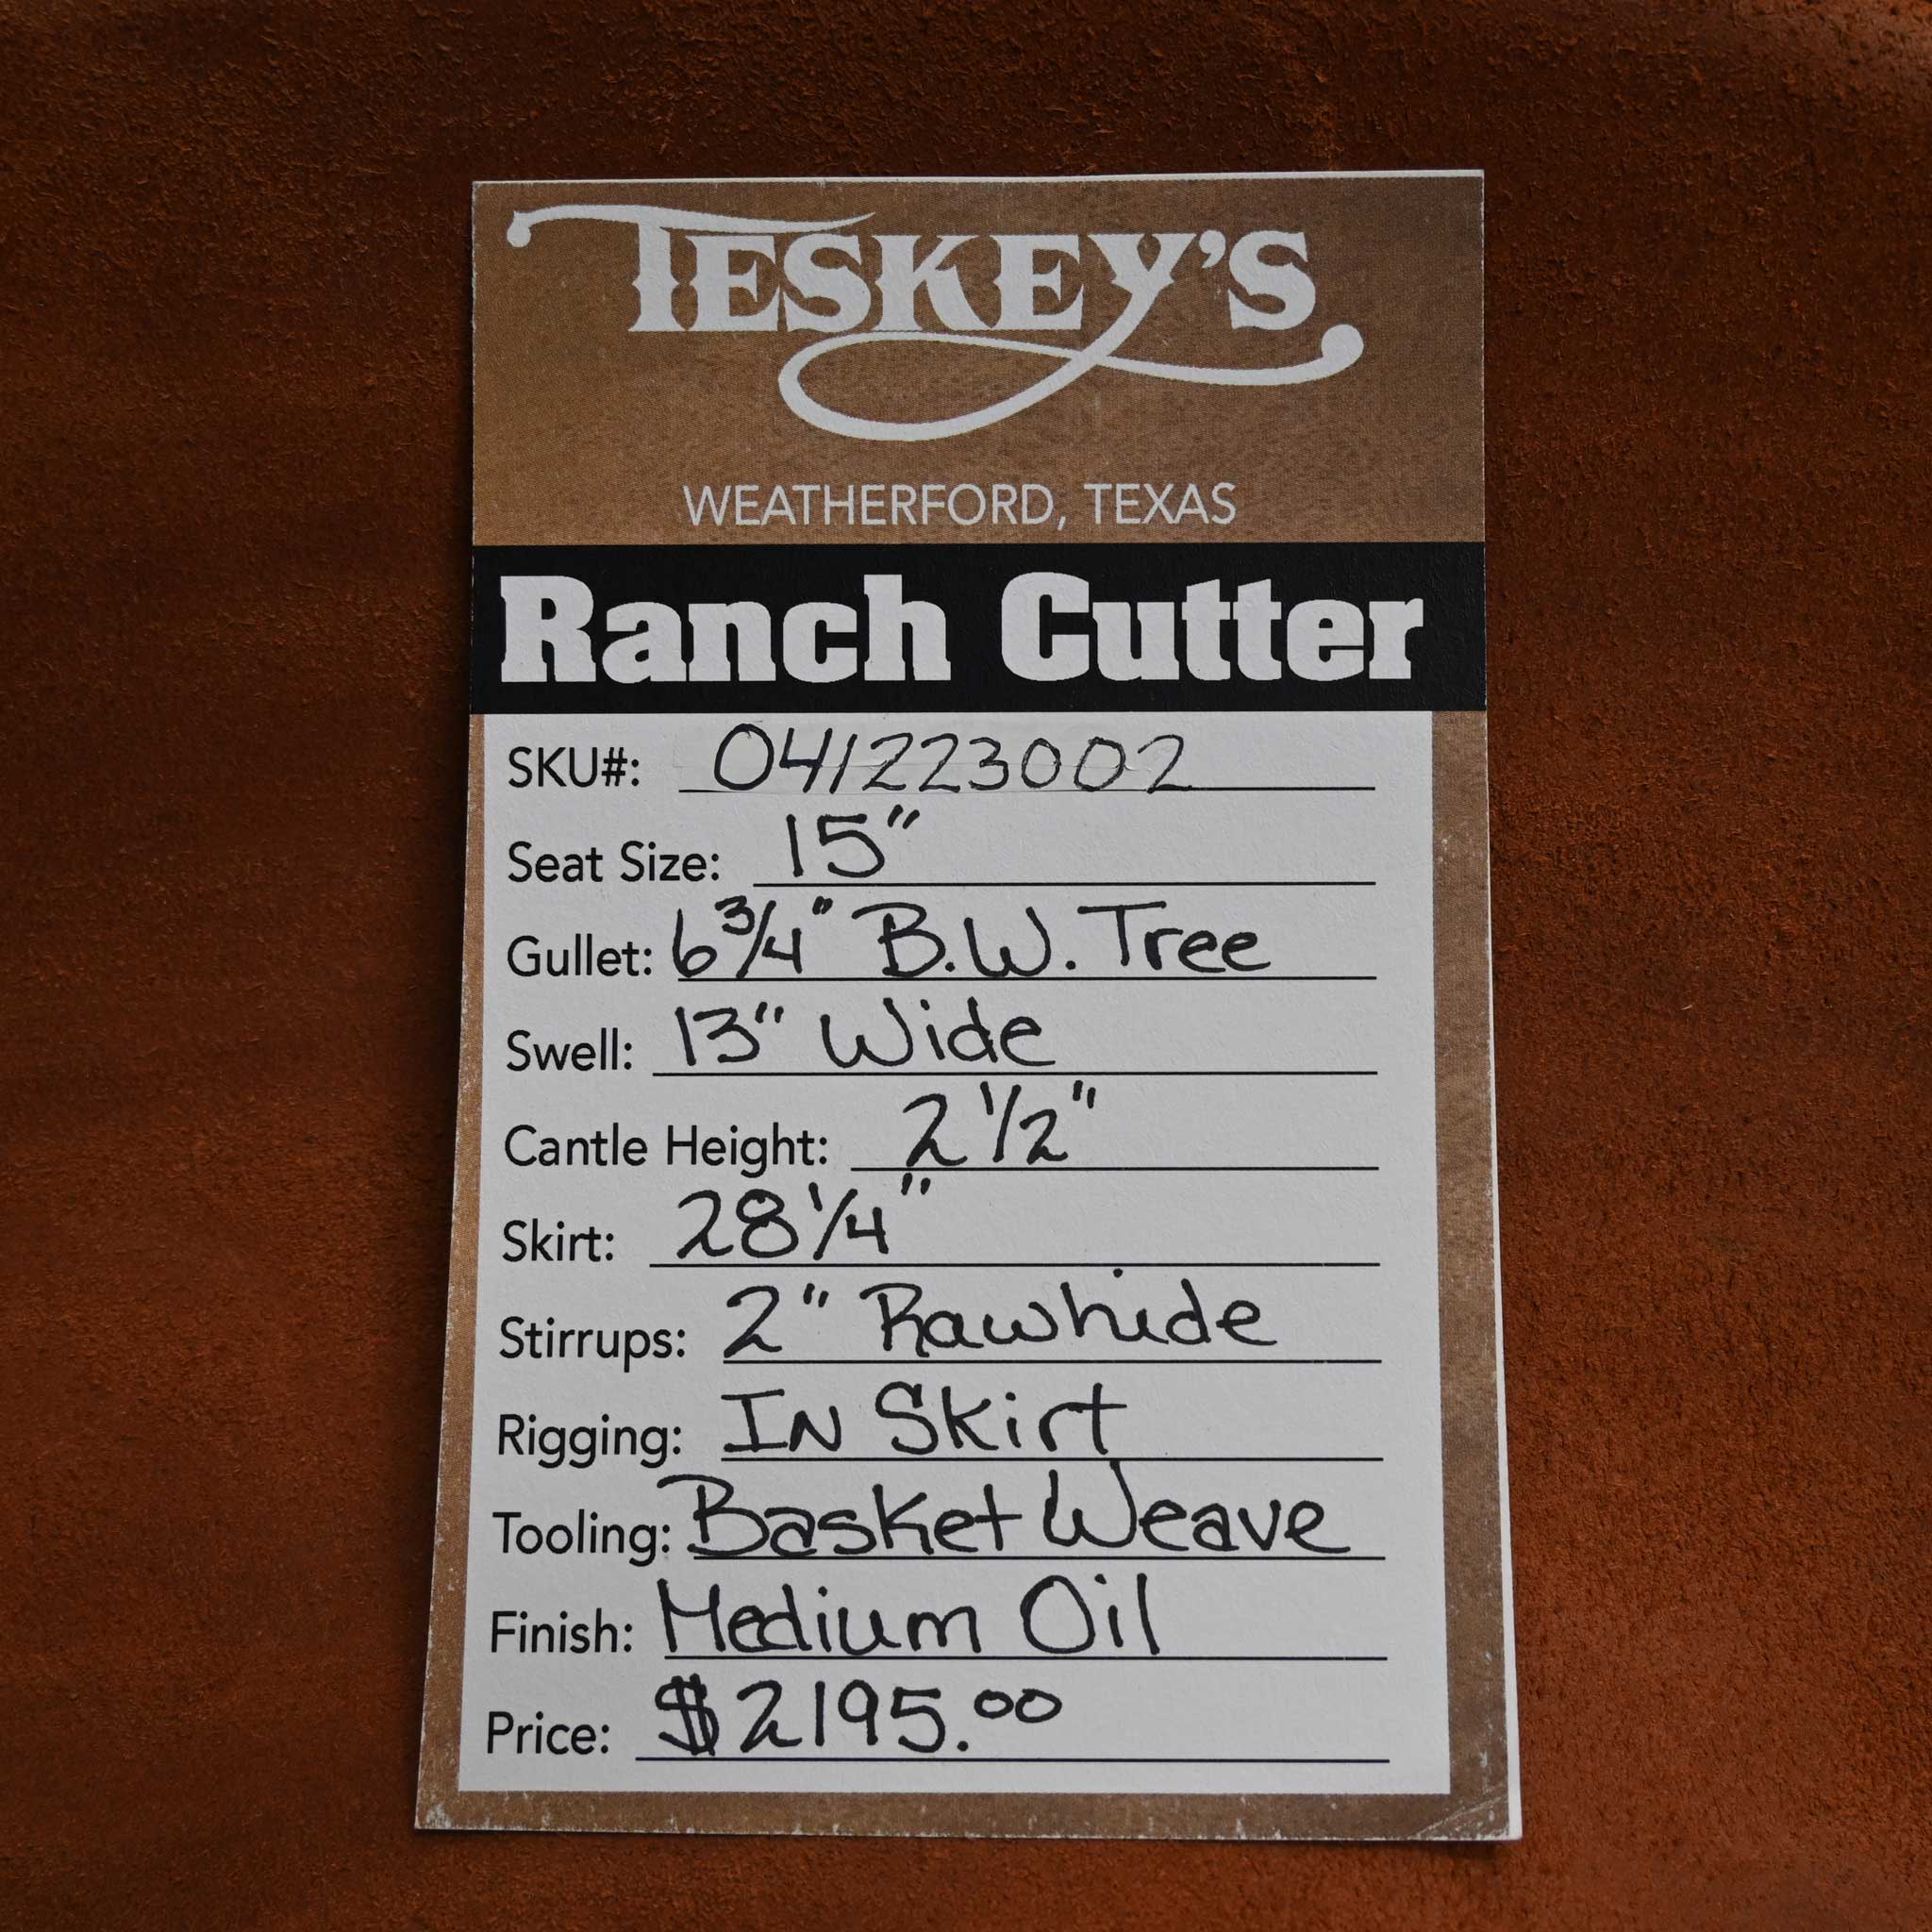 TESKEY'S
WEATHERFORD, TEXAS
Ranch Cutter
SKU#: 041223002
Seat Size: 15"
Gullet: 6 3/4" B.W. Tree
Swell: 13" Wide
Cantle Height: 2 1/2"
Skirt: 28 1/4"
Stirrups: 2" Rawhide
Rigging: IN Skirt
Tooling: Basket Weave
Finish: Medium Oil
Price: $2195.00